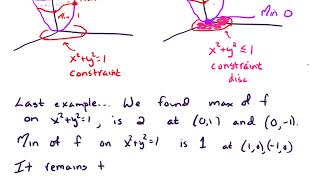 Min 1
x²+y²=1
constraint
Min 0
x²+y² ≤ 1
constraint
disc
Last example... We found max of f
on x²+y²=1, is 2 at (0,1) and (0,-1).
Min of f on x²+y²=1 is 1 at (1,0),(-1,0)
It remains t